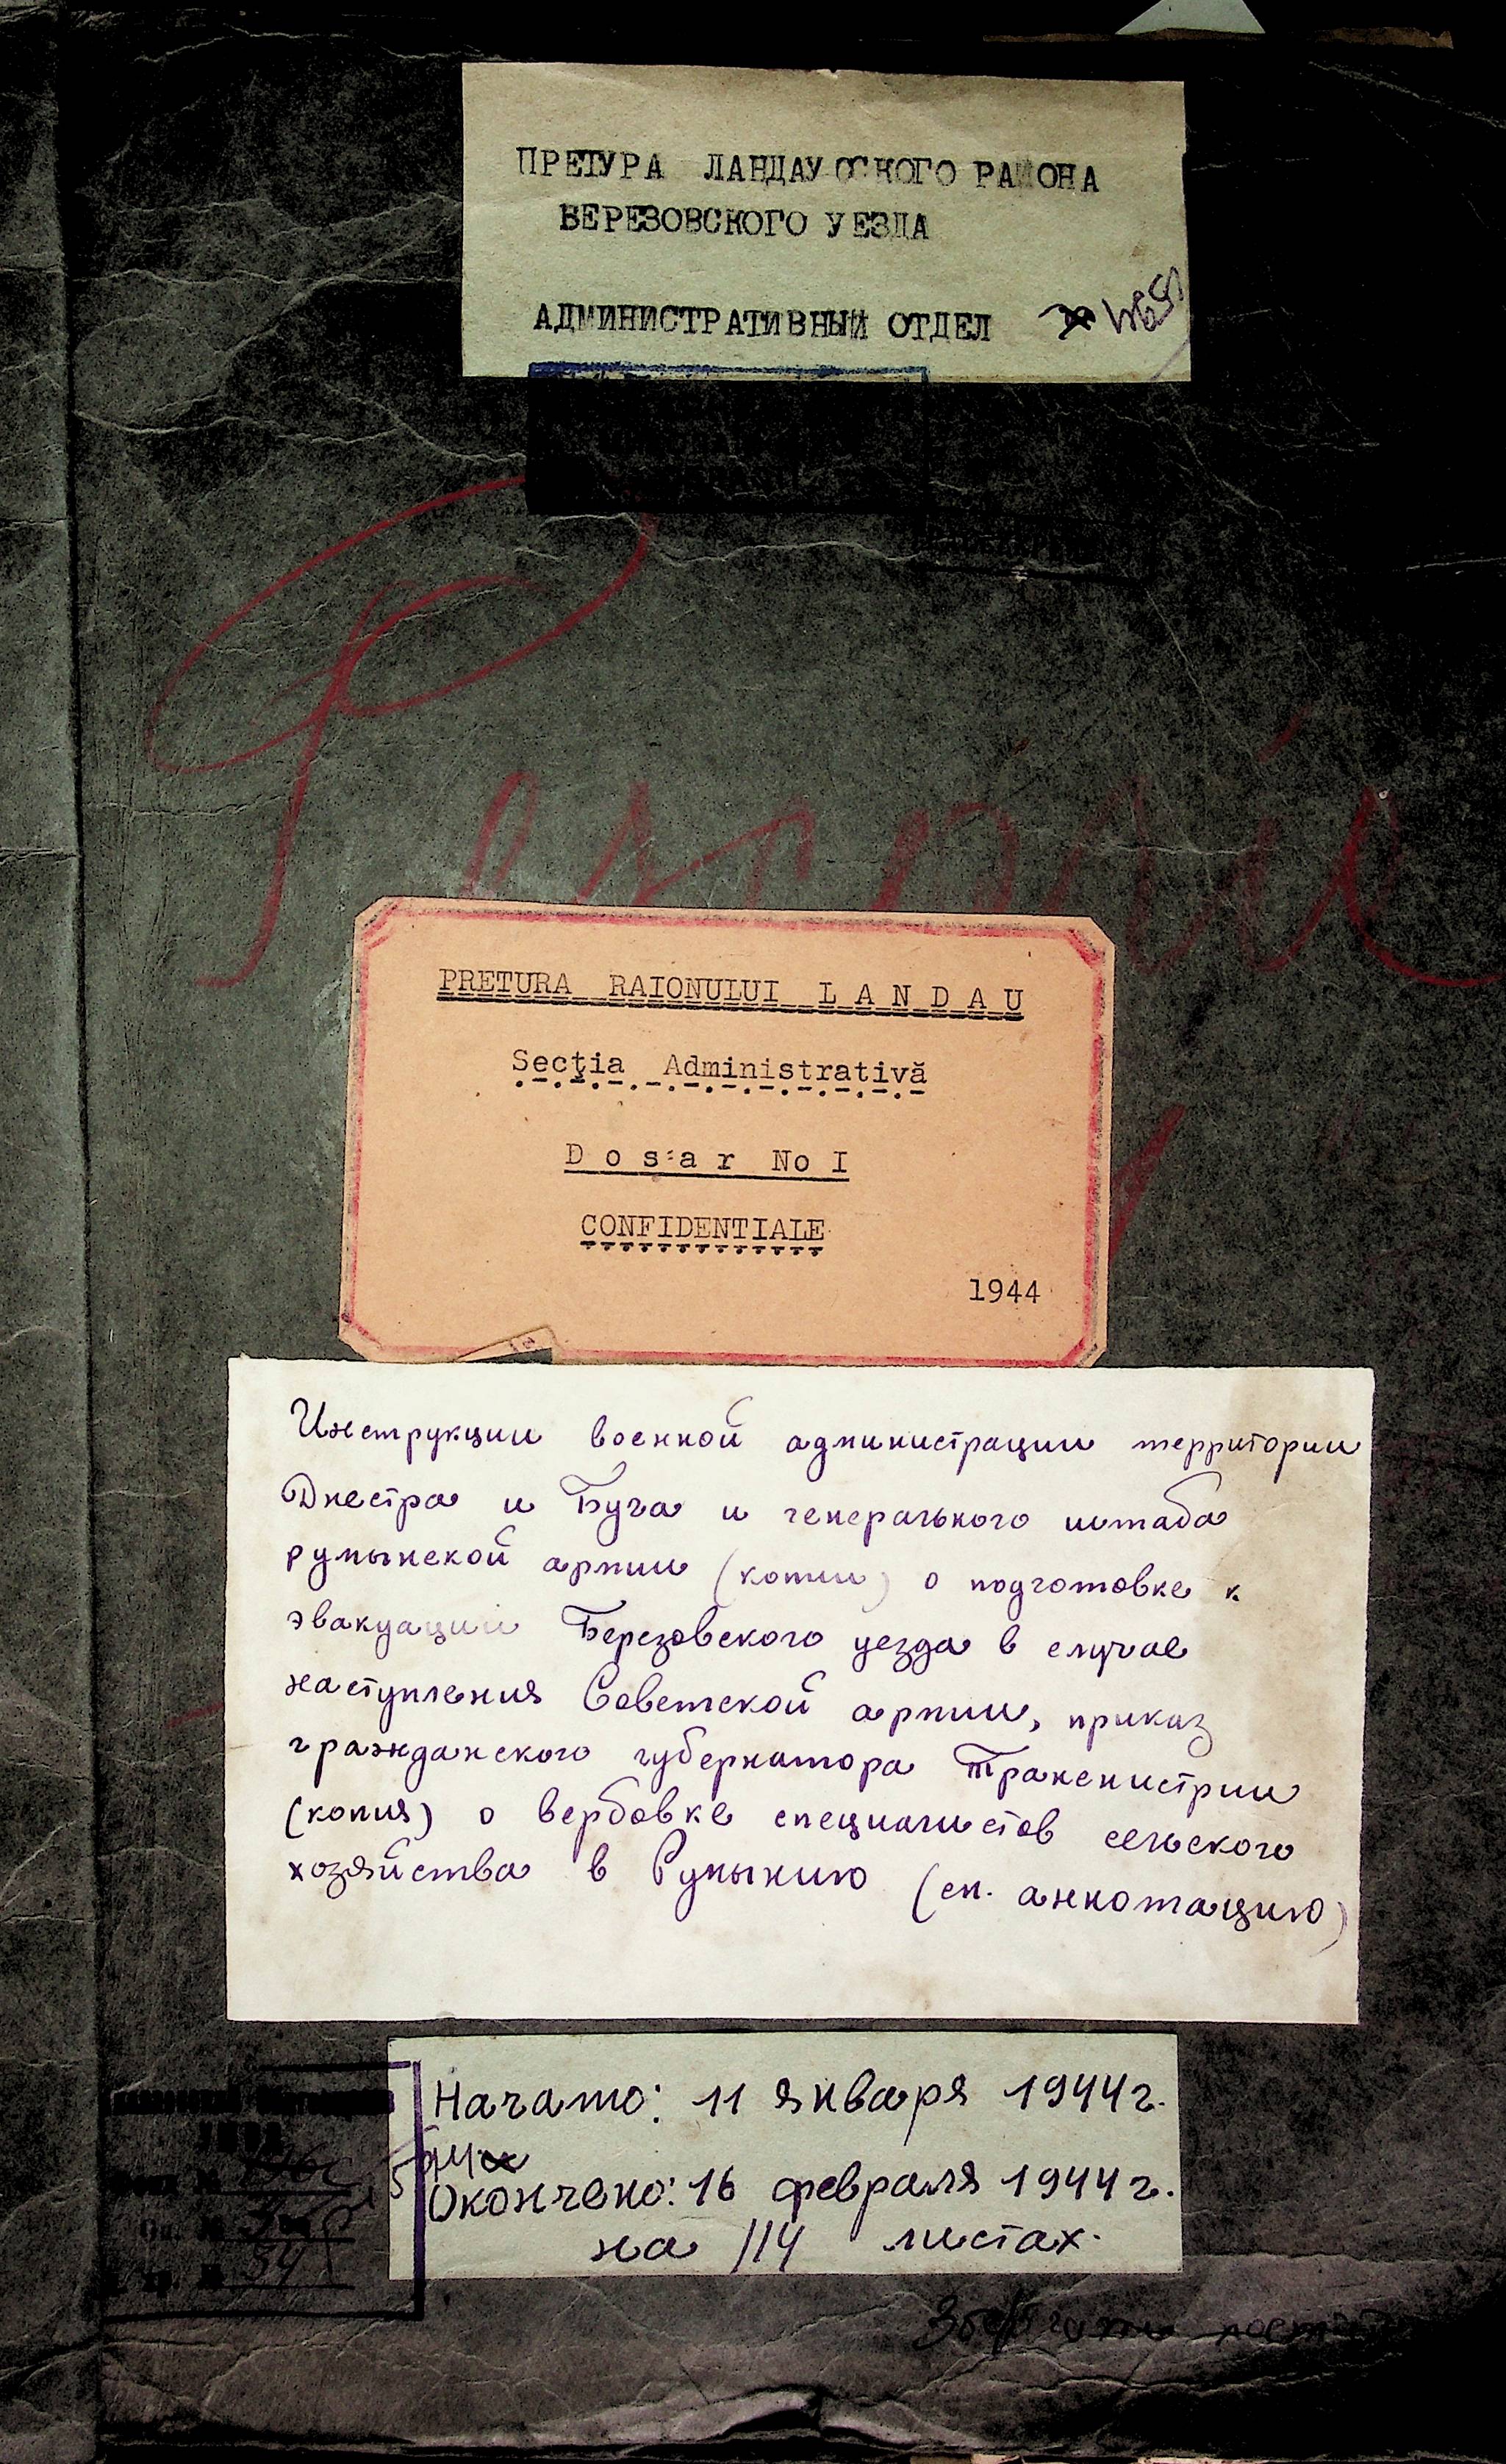 ПРЕТУРА ЛАНДАУССКОГО РАЙОНА
БЕРЕЗОВСКОГО УЕЗДА
АДМИНИСТРАТИВНЫЙ ОТДЕЛ
PRETURA RAIONULUI LANDAU
Secţia Administrativă
Dosar No I
CONFIDENTIALE
1944
Инструкции военной администрации территории
Днестра и Буга и генерального штаба
румынской армии (копии) о подготовке к
эвакуации Березовского уезда в случае
наступления Советской армии, приказ
гражданского губернатора Транснистрии
(копия) о вербовке специалистов сельского
хозяйства в Румынию (см. аннотацию)
Начато: 11 января 1944 г.
Окончено: 16 февраля 1944 г.
на 114 листах.